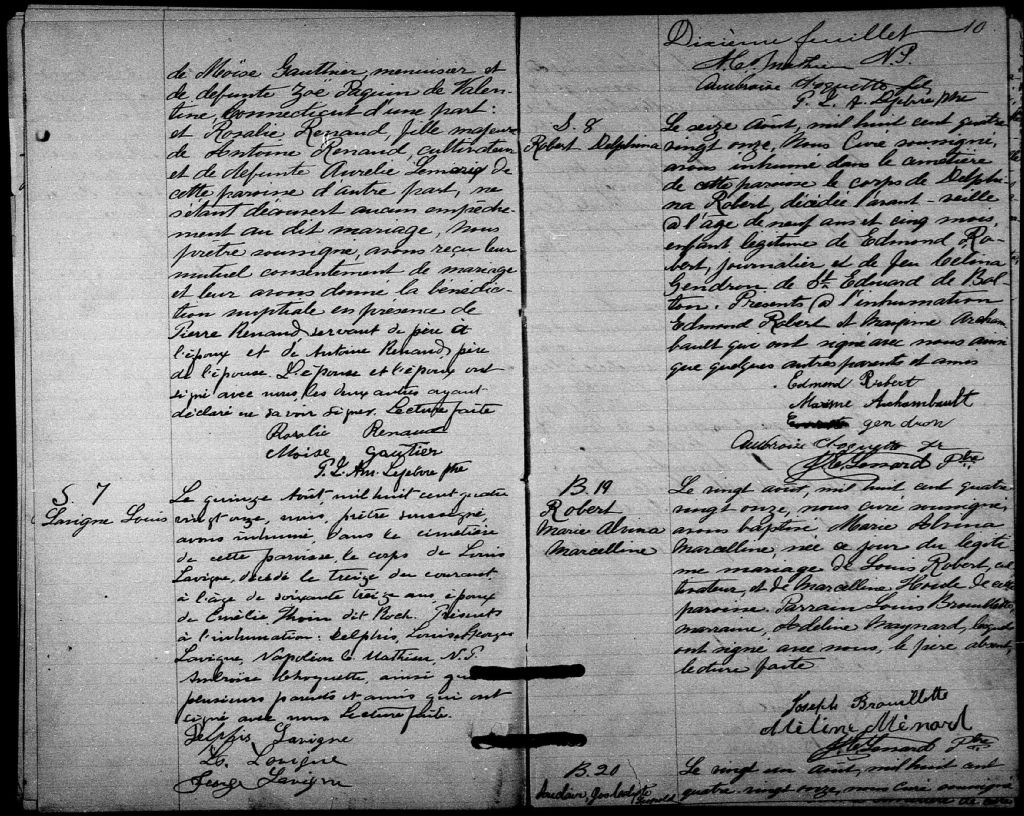 de Moïse Gauthier, menuisier et
de defunte Zoë Paquin de Valen-
tine, Connecticut d'une part:
et Rosalie Renaud, fille majeure
de Antoine Renaud cultivateur
et de defunte Aurelie de
cette paroisse d'autre part, ne
s'étant découvert aucun empêche-
ment au dit mariage, Nous
prêtre soussigné, avons reçu leur
mutuel consentement de mariage
et leur avons donné la bénédic-
tion nuptiale en présence de
Pierre Renaud, servant de père à
l'époux et de Antoine Renaud, père
de l'épouse. L'épouse et l'époux ont
signé avec nous, les deux autres ayant
déclaré ne savoir signer. Lecture faite
Rosalie Renaud
Moïse Gautier
Lefebvre ptre
S. 7
Lavigne Louis
Le quinze Août mil huit cent quatre
vingt onze, nous, prêtre soussigné,
avons inhumé, dans le cimetière
de cette paroisse, le corps de Louis
Lavigne, décédé le treize du courant
à l'âge de soixante treize ans, époux
de Emélie dit Roch. Présents
à l'inhumation: Delphis, Louis, Georges
Lavigne, Napoléon C. Mathieu, N.P.
Ambroise Choquette, ainsi que
plusieurs parents et amis qui ont
signé avec nous Lecture faite.
Delphis Lavigne
Ls. Lavigne
George Lavigne
Dixième feuillet 10
Mathieu N.P.
Ambroise Choquette
Lefebvre ptre
S. 8
Robert Delphina
Le seize Août, mil huit cent quatre
vingt onze, Nous Curé soussigné,
avons inhumé dans le cimetière
de cette paroisse le corps de Delphi-
na Robert, décédée l'avant-veille
à l'âge de neuf ans et cinq mois,
enfant légitime de Edmond Ro-
bert, journalier et de feu Celina
Gendron de St. Edouard de Bol-
ton. Présents à l'inhumation
Edmond Robert et Maxime Archam-
bault qui ont signé avec nous ainsi
que quelques autres parents et amis
Edmond Robert
Maxime Archambault
gendron
Ambroise Choquette
Lessard Ptre
B. 19
Robert
Marie Alvina
Marcelline
Le vingt août, mil huit cent quatre
vingt onze, nous curé soussigné,
avons baptisé Marie Alvina
Marcelline, née ce jour du légiti
me mariage de Louis Robert, cul
tivateur, et de Marcelline Houle de cette
paroisse. Parrain Louis Brouillette,
marraine, Adeline Maynard, lesquels
ont signé avec nous, le père absent,
lecture faite
Joseph Brouillette
Méline Ménard
Lessard Ptre
B. 20
Le vingt un Août, mil huit cent
quatre vingt onze, nous curé soussigné